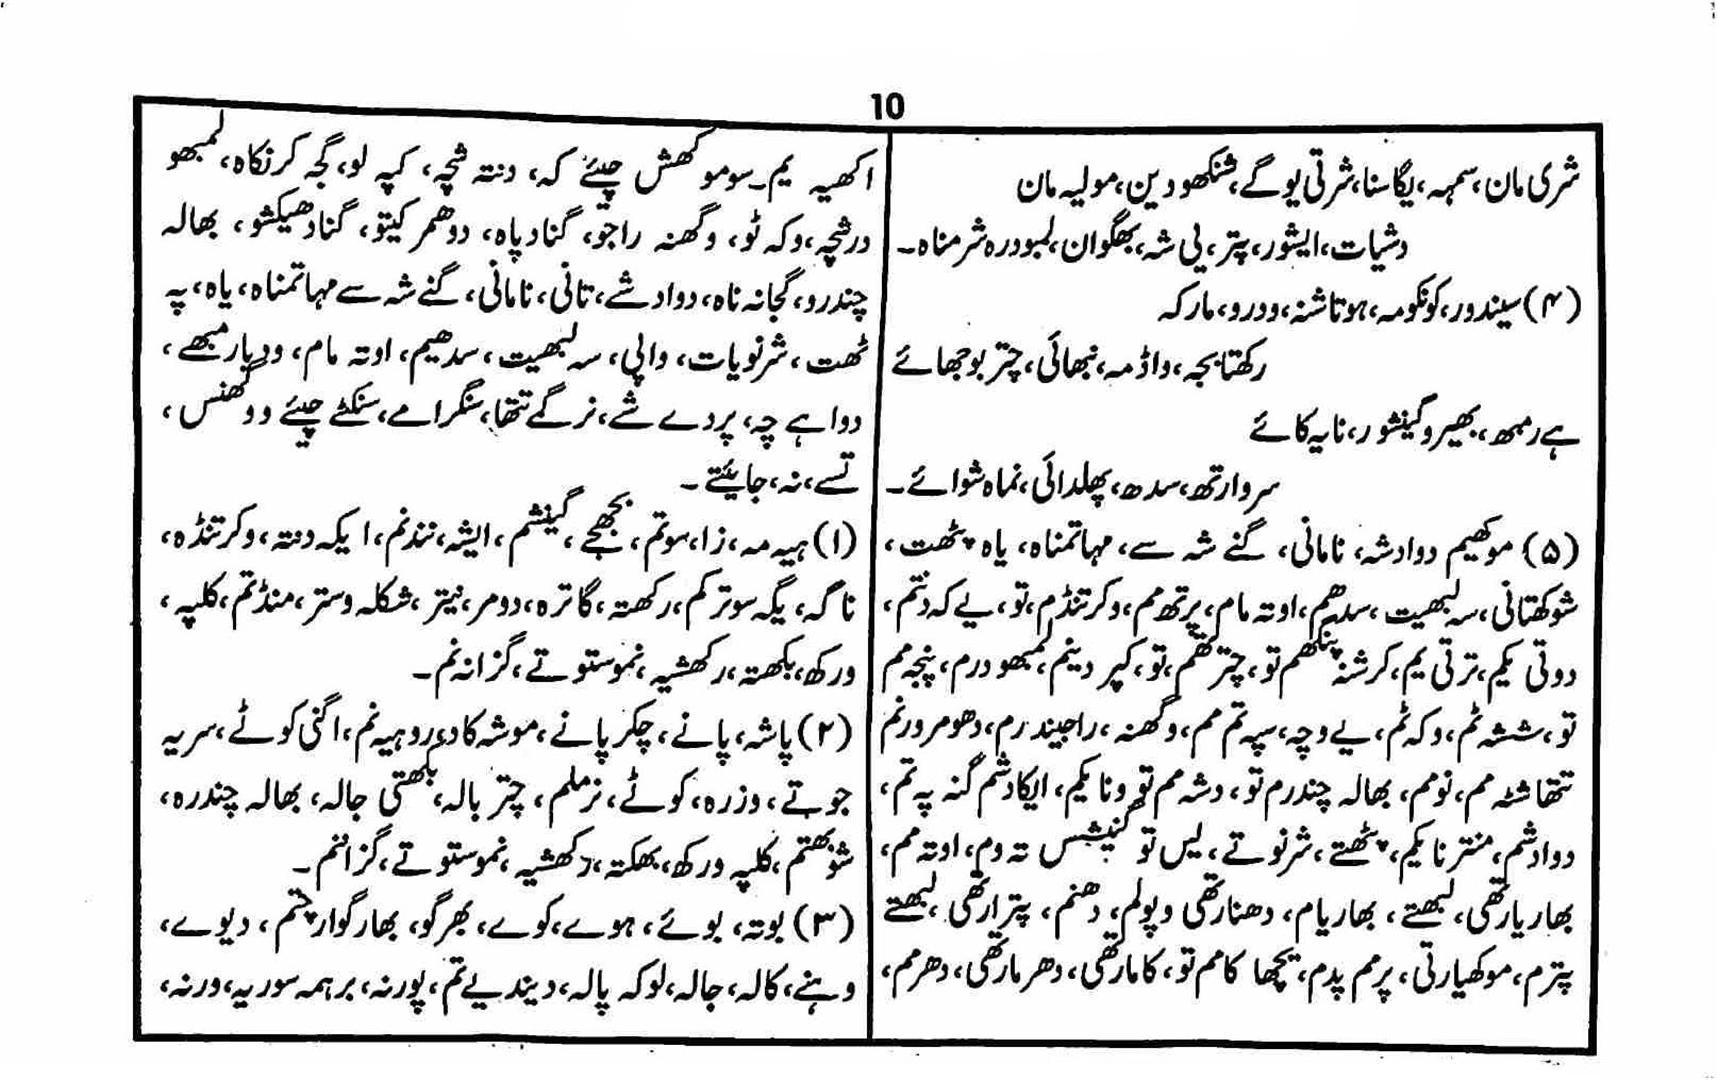 10
شری مان، سمہہ، یگاسنا، شرتی یوگے، شنکھودین، مولیہ مان
دشیات، ایشور، پتر، لی شہ، بھگوان، لمبودرہ شرمناہ۔
(۴) سیندور، کونکومہ، ہوتاشنہ، ودرو، مارکہ
رکھتابجہ، واڈمہ، نبھائی، چتر بوجھائے
ہے رمبھ، بھیرو گینشور، نایہ کائے
سروارتھ، سدھ، پھلدائی، نماہ شوائے۔
(۵) موکھیم دوادشہ، نامانی، گنے شہ سے، مہاتمناہ، یاہ پٹھت،
شوکھتانی، سہ لبھیت، سدھم، اوتہ مام، پرتھ مم، وکرتنڈم، تو، یے کہ دنتم،
دوتی یکیم، ترتی یم، کرشنہ پنکھم تو، چترتھم، تو، کپر دینم، لمبھودرم، پنجہ مم
تو، ششہ ٹم، وکہ ٹم، یے وچہ، سپہ تم مم، وگھنہ، راجیندرم، دھومرورنم
تتھا شٹہ مم، نومم، بھالہ چندرم تو، دشہ مم تو ونایکم، ایکادشم گنہ پہ تم،
دوادشم، منتر نایکم، پٹھتے، شرنوتے، یس تو گنیشس تہ وم، اوتہ مم،
بھاریارتھی، لبھتے، بھاریام، دھنارتھی وپولم، دھنم، پترارتھی، لبھتے
پترم، موکھیارتی، پرمم پدم، یچھا کامم تو، کامارتھی، دھرمارتھی، دھرمم،
اکھیہ یم۔ سومو کھش چیئے کہ، دنتہ شچہ، کپہ لو، گجہ کرنکاہ، لمبھو
درشچہ، وکہ ٹو، وگھنہ راجو، گنادپاہ، دوھمر کیتو، گنادھیکشو، بھالہ
چندرو، گجانہ ناہ، دوادشے، تانی، نامانی، گنے شہ سے مہاتمناہ، یاہ، پہ
ٹھت، شرنویات، واپی، سہ لبھیت، سدھیم، اوتہ مام، ودیارمبھے،
دواہے چہ، پردے شے، نرگے تتھا، سنگرامے، سنکٹے چیئے ووگھنس،
تسے، نہ، جایئتے۔
(۱) ہیہ مہ، زا، سوتم، بجھجے، گینشم، ایشہ، نندنم، ایکہ دنتہ، وکرتنڈہ،
ناگہ، یگہ سوترکم، رکھتہ، گاترہ، دومر، نیتر، شکلہ وستر، منڈتم، کلپہ،
ورکھ، بکھتہ، رکھشیہ، نموستوتے، گزانہ نم۔
(۲) پاشہ، پانے، چکر پانے، موشہ کادروہیہ نم، اگنی کوٹے، سریہ
جوتے، وزرہ، کوٹے، نرملم، چتر بالہ، بھکتی جالہ، بھالہ چندرہ،
شوبھتم، کلپہ ورکھ، بھکتہ، رکھشیہ، نموستوتے، گزاننم۔
(۳) بوتہ، بوئے، ہوے، کوے، بھرگو، بھارگوارچتم، دیوے،
وہنے، کالہ، جالہ، لوکہ پالہ، دیندیے تم، پورنہ، برہمہ سوریہ، ورنہ،